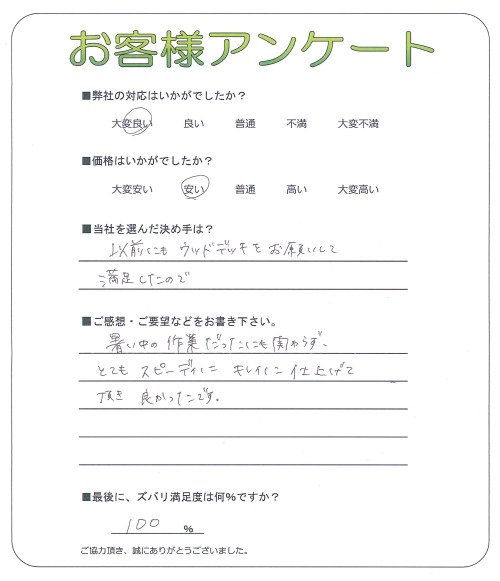 お客様アンケート
■弊社の対応はいかがでしたか？
大変良い 良い 普通 不満 大変不満
■価格はいかがでしたか？
大変安い 安い 普通 高い 大変高い
■当社を選んだ決め手は？
以前にも ウッドデッキを お願いして
満足したので
■ご感想・ご要望などをお書き下さい。
暑い中の 作業だったにも関わらず、
とても スピーディに キレイに 仕上げて
頂き 良かったです。
■最後に、ズバリ満足度は何％ですか？
100 ％
ご協力頂き、誠にありがとうございました。